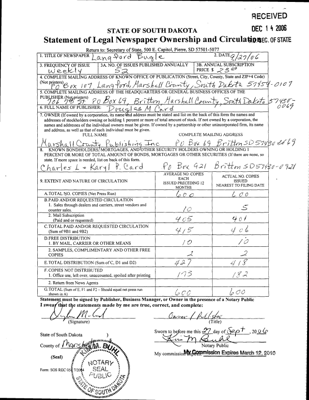 RECEIVED
DEC 14 2006
STATE OF SOUTH DAKOTA
Statement of Legal Newspaper Ownership and Circulation
SEC. OF STATE
Return to: Secretary of State, 500 E. Capitol, Pierre, SD 57501-5077
1. TITLE OF NEWSPAPER Langford Bugle
2. DATE 9/27/06
3. FREQUENCY OF ISSUE Weekly
3A. NO. OF ISSUES PUBLISHED ANNUALLY 52
3B. ANNUAL SUBSCRIPTION PRICE $
4. COMPLETE MAILING ADDRESS OF KNOWN OFFICE OF PUBLICATION (Street, City, County, State and ZIP+4 Code) (Not printers)
PO Box 107 Langford, Marshall County, South Dakota 57454-0107
5. COMPLETE MAILING ADDRESS OF THE HEADQUARTERS OF GENERAL BUSINESS OFFICES OF THE PUBLISHER (Not printers)
PO Box 69, Britton, Marshall County, South Dakota 57430
6. FULL NAME OF PUBLISHER: Douglas M Card
7. OWNER (If owned by a corporation, its name and address must be stated and list on the back of this form the names and
addresses of stockholders owning or holding 1 percent or more of total amount of stock. If not owned by a corporation, the
names and addresses of the individual owners must be given. If owned by a partnership or other unincorporated firm, its name
and address, as well as that of each individual must be given.
FULL NAME COMPLETE MAILING ADDRESS
Marshall County Publishing Inc. PO Box 69 Britton SD 57430-0069
8. KNOWN BONDHOLDERS, MORTGAGEES, AND OTHER SECURITY HOLDERS OWNING OR HOLDING 1
PERCENT OR MORE OF TOTAL AMOUNT OF BONDS, MORTGAGES OR OTHER SECURITIES (If there are none, so
state. If more space is needed, list on back of this form.
Charles L + Karyl F. Card PO Box 421 Britton SD 57430-0421
9. EXTENT AND NATURE OF CIRCULATION
AVERAGE NO. COPIES EACH ISSUED PRECEDING 12 MONTHS
ACTUAL NO. COPIES ISSUED NEAREST TO FILING DATE
A. TOTAL NO. COPIES (Net Press Run) 600 600
B. PAID AND/OR REQUESTED CIRCULATION
1. Sales through dealers and carriers, street vendors and counter sales. 10 5
2. Mail Subscription (Paid and or requested) 405 401
C. TOTAL PAID AND/OR REQUESTED CIRCULATION (Sum of 9B1 and 9B2) 415 406
D. FREE DISTRIBUTION
1. BY MAIL, CARRIER OR OTHER MEANS 10 10
2. SAMPLES, COMPLIMENTARY AND OTHER FREE COPIES 2 2
E. TOTAL DISTRIBUTION (Sum of C, D1 and D2) 427 418
F. COPIES NOT DISTRIBUTED
1. Office use, left over, unaccounted, spoiled after printing 173 182
2. Return from News Agents
G. TOTAL (Sum of E, F1 and F2 - Should equal net press run shown in A) 600 600
Statement must be signed by Publisher, Business Manager, or Owner in the presence of a Notary Public
I swear that the statements made by me are true, correct, and complete:
(Signature) (Title)
State of South Dakota )
County of Marshall
Sworn to before me this 27 day of Sept, 2006
(Seal)
Notary Public
My commission
My Commission Expires March 12, 2010
KIM M. BUHL
NOTARY
SEAL
PUBLIC
SOUTH DAKOTA